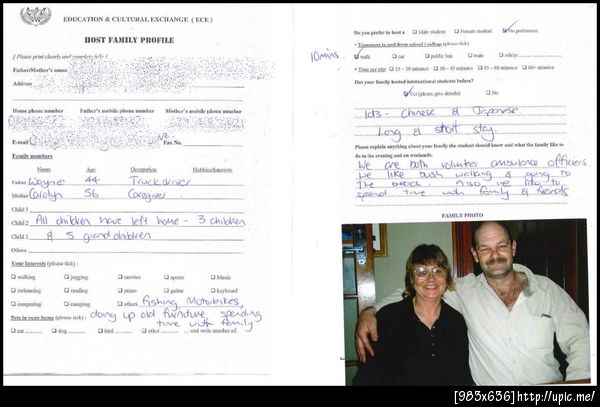 EDUCATION & CULTURAL EXCHANGE ( ECE )
HOST FAMILY PROFILE
[ Please print clearly and
Father/Mother's name
Address
Home phone number Father's mobile phone number Mother's mobile phone number
E-mail Fax No.
Family numbers
Name Age Occupation Hobbies/Interests
Father Wayne 44 Truckdriver
Mother Carolyn 56 Caregiver
Child 1
Child 2 All children have left home - 3 children
Child 3 & 5 grandchildren
Others
Your Interests (please tick) :
☐ walking ☐ jogging ☐ movies ☐ sports ☐ Music
☐ swimming ☐ reading ☐ piano ☐ guitar ☐ keyboard
☐ computing ☐ camping ☐ others fishing, Motorbikes,
Pets in your home (please tick) : doing up old furniture, spending
time with family
☐ cat ☐ dog ☐ bird ☐ other and write number of.
Do you prefer to host a ☐ Male student ☐ Female student ☑ No preference
• Transport to and from school / college (please tick)
10mins. ☑ walk ☐ car ☐ public bus ☐ train ☐ others
• Time per trip: ☐ 15 – 30 minutes ☐ 30 – 45 minutes ☐ 45 – 60 minutes ☐ 60+ minutes
Has your family hosted international students before?
☑ Yes (please give details) ☐ No
- Chinese & Japanese.
Long & short stay.
Please explain anything about your family the student should know and what the family like to
do in the evening and on weekends.
We are both volunter ambulance officers
We like bush walking & going to
the beach. Also we like to
spend time with family & friends
FAMILY PHOTO
[983x656] http://upic.me/